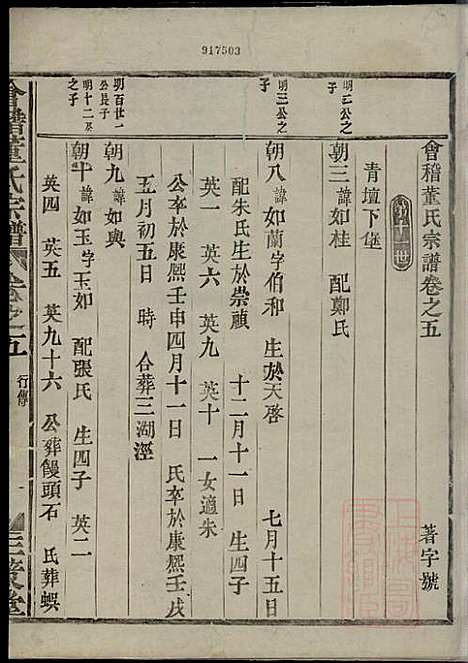 917503
會稽董氏宗譜卷之五
著字號
青壇下堡
明二公之
子
朝三 諱如桂 配鄭氏
明三公之
子
朝八 諱如蘭字伯和 生於天啓 七月十五日
配朱氏生於崇禎 十二月十一日 生四子
英一 英六 英九 英十 一女適朱
公卒於康熙壬申四月十一日 氏卒於康熙壬戌
五月初五日 時 合葬三湖涇
明百廿一
公長子
朝九 諱如與
明十二公
之子
朝十 諱如玉字玉如 配張氏 生四子 英二
英四 英五 英九十六 公葬饅頭石 氏葬蜈
會稽董氏宗譜 卷之五 行傳 三策堂